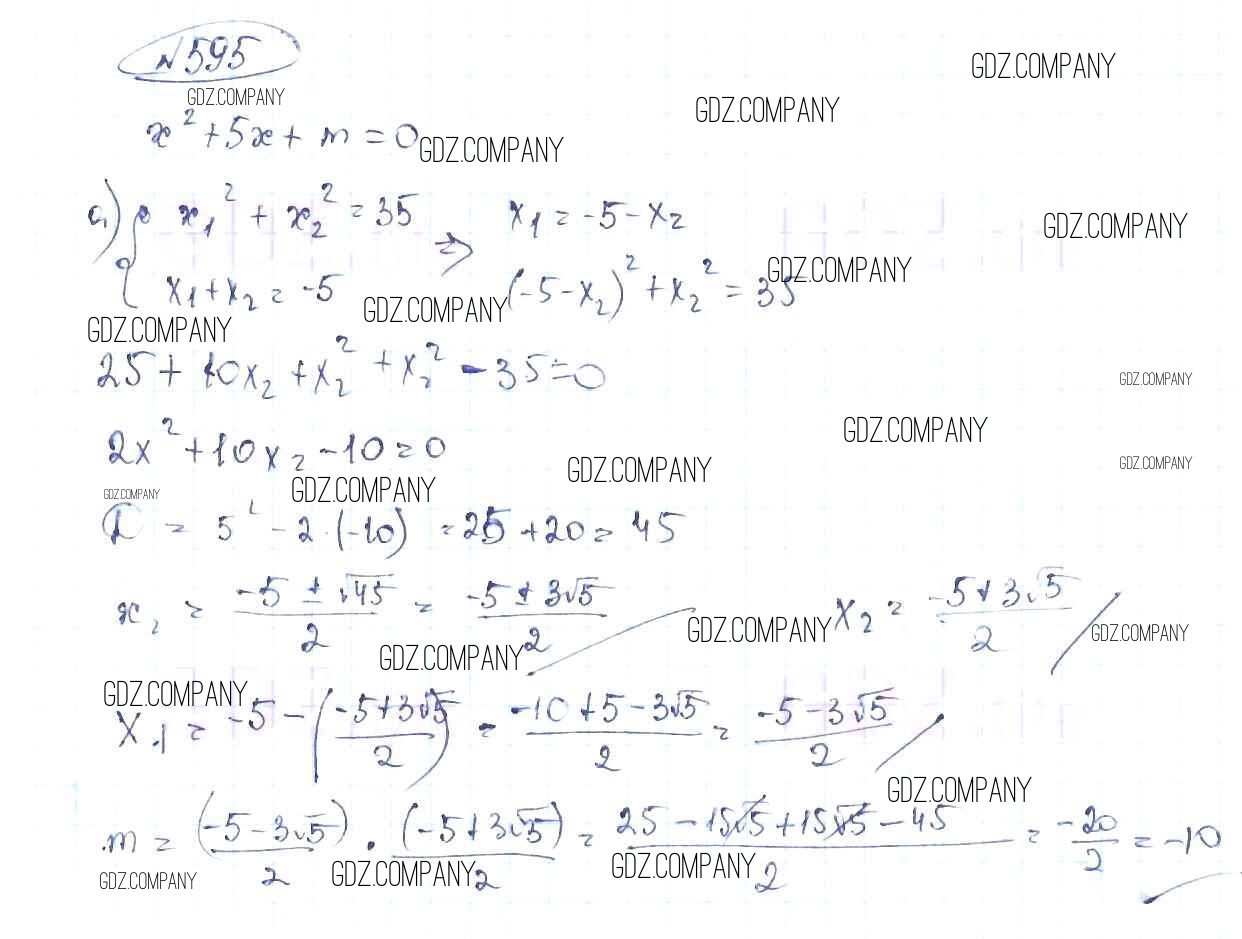 №595
GDZ.COMPANY
GDZ.COMPANY
GDZ.COMPANY
x² + 5x + m = 0
GDZ.COMPANY
а) { x₁² + x₂² = 35 ⇒ x₁ = -5 - x₂
GDZ.COMPANY
GDZ.COMPANY
x₁ + x₂ = -5 (-5 - x₂)² + x₂² = 35
GDZ.COMPANY
GDZ.COMPANY
25 + 10x₂ + x₂² + x₂² - 35 = 0
GDZ.COMPANY
GDZ.COMPANY
2x² + 10x₂ - 10 = 0
GDZ.COMPANY
GDZ.COMPANY
GDZ.COMPANY
GDZ.COMPANY
D = 5² - 2 · (-10) = 25 + 20 = 45
x₂ = (-5 ± √45)/2 = (-5 ± 3√5)/2 x₂ = (-5 + 3√5)/2
GDZ.COMPANY
GDZ.COMPANY
GDZ.COMPANY
GDZ.COMPANY
x₁ = -5 - ((-5 + 3√5)/2) = (-10 + 5 - 3√5)/2 = (-5 - 3√5)/2
GDZ.COMPANY
m = (-5 - 3√5)/2 · (-5 + 3√5)/2 = (25 - 15√5 + 15√5 - 45)/2 = -20/2 = -10
GDZ.COMPANY
GDZ.COMPANY
GDZ.COMPANY